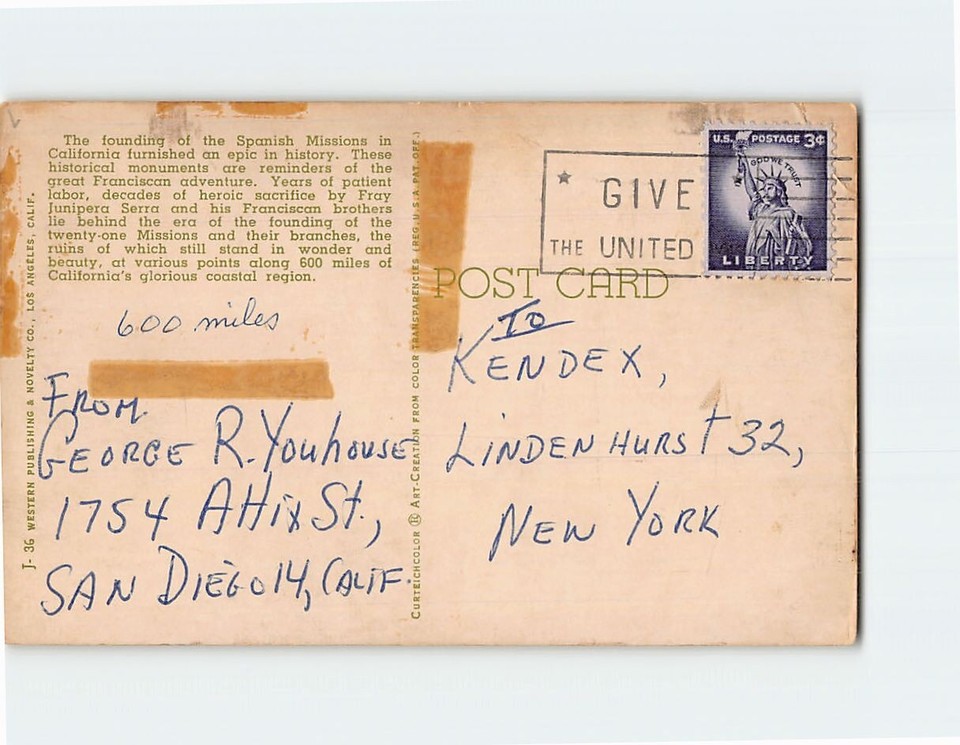 The founding of the Spanish Missions in
California furnished an epic in history. These
historical monuments are reminders of the
great Franciscan adventure. Years of patient
labor, decades of heroic sacrifice by Fray
Junipera Serra and his Franciscan brothers
lie behind the era of the founding of the
twenty-one Missions and their branches, the
ruins of which still stand in wonder and
beauty, at various points along 600 miles of
California's glorious coastal region.
600 miles
FROM
GEORGE R. YOUHOUSE
1754 Altix St.,
SAN DIEGO 14, CALIF.
J-36 WESTERN PUBLISHING & NOVELTY CO., LOS ANGELES, CALIF.
CURTEICHCOLOR ® ART-CREATION FROM COLOR TRANSPARENCIES (REG. U.S.A. PAT. OFF.)
GIVE
THE UNITED
U.S. POSTAGE 3¢
IN GOD WE TRUST
LIBERTY
POST CARD
TO
KENDEX,
LINDENHURST 32,
NEW YORK